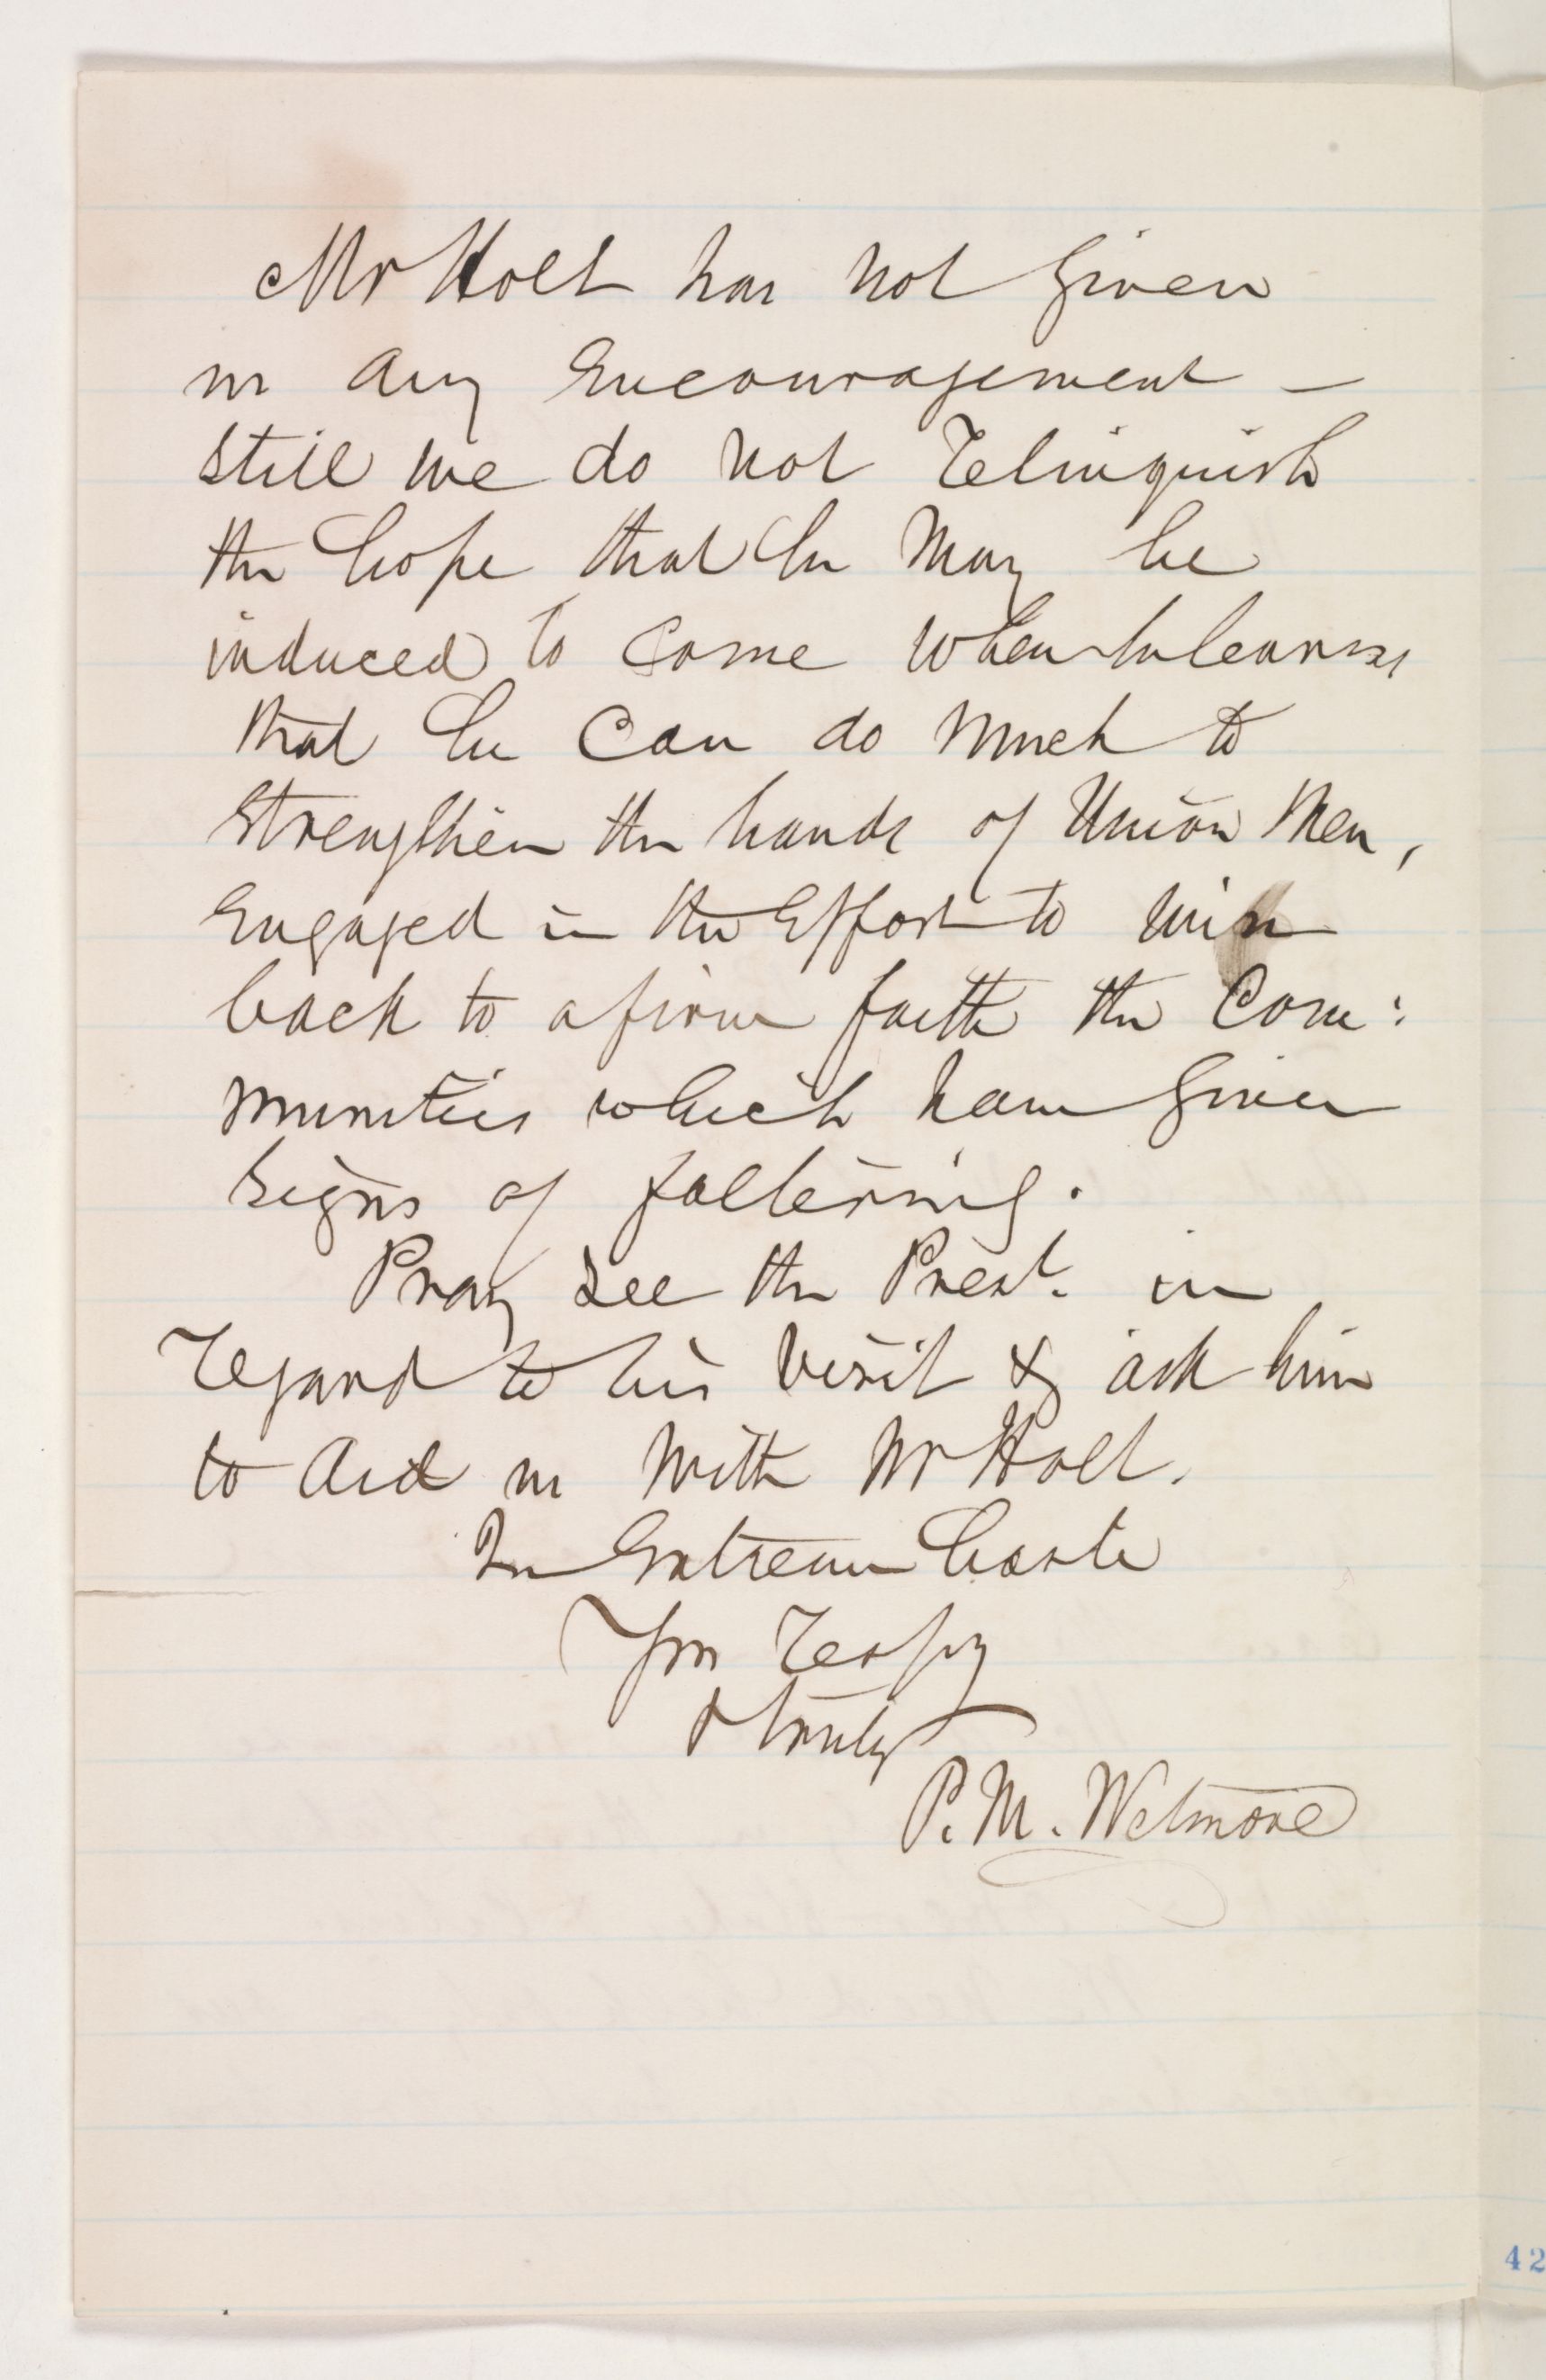 Mr Holt has not given
us any Encouragement —
still we do not relinquish
the hope that he may be
induced to come when he learns
that he can do much to
strengthen the hands of Union Men,
Engaged in the Effort to win
back to a firm faith the Com:
munities which have given
signs of faltering.
Pray see the Prest. in
regard to his visit & ask him
to aid us with Mr Holt.
In Extreme haste
Yrs respy
& truly
P. M. Wetmore
42